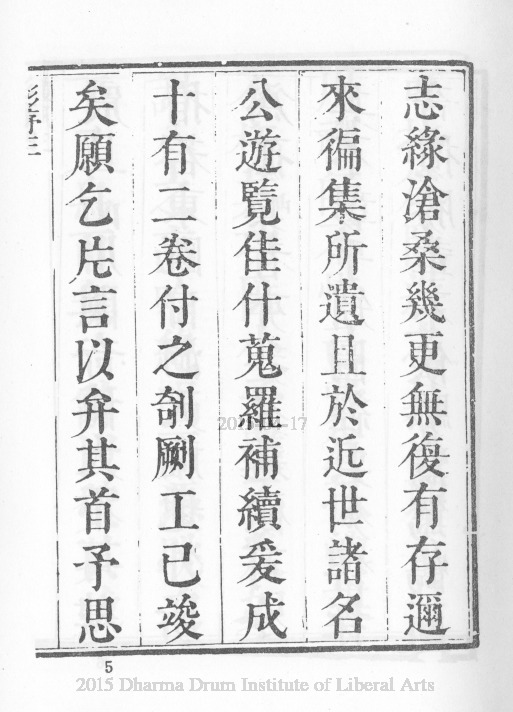 志緣滄桑幾更無復有存邇
來徧集所遺且於近世諸名
公遊覽佳什蒐羅補續爰成
十有二卷付之剞劂工已竣
矣願乞片言以弁其首予思
5
2015 Dharma Drum Institute of Liberal Arts